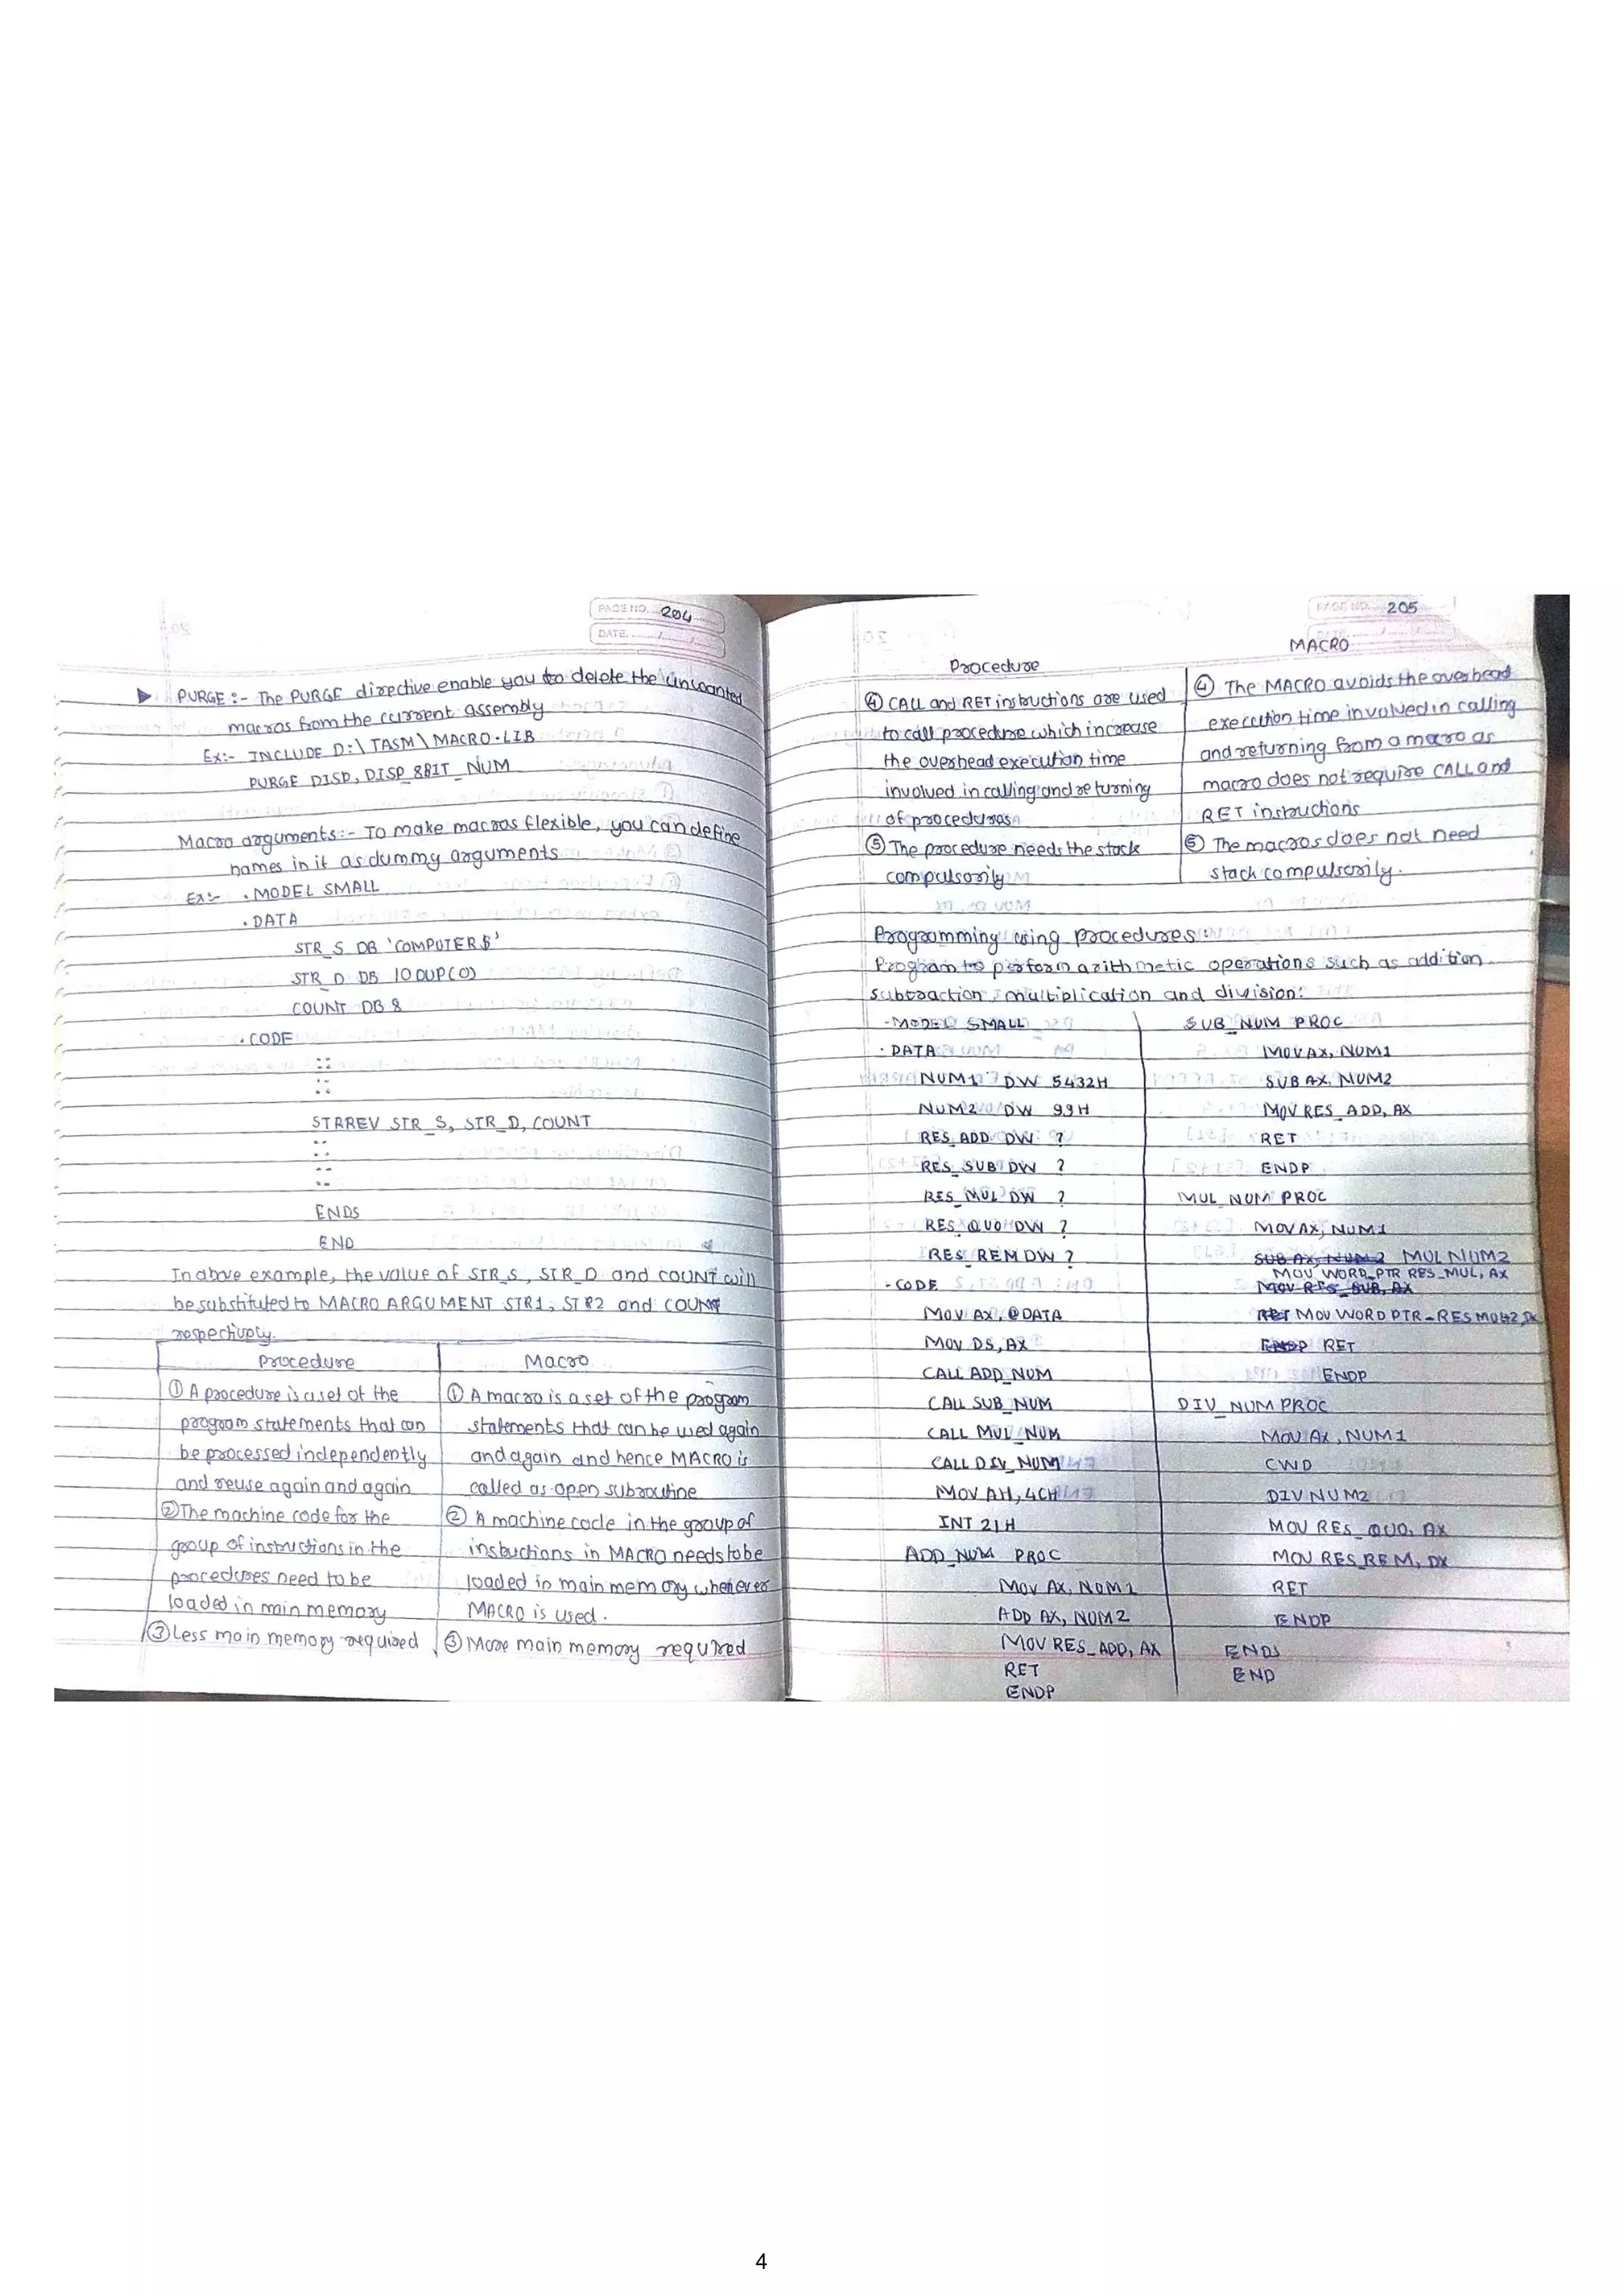 PAGE NO. 204
DATE.
PURGE :- The PURGE directive enable you to delete the unwanted
macros from the current assembly
Ex:- INCLUDE D:\TASM\MACRO.LIB
PURGE DISP, DISP_8BIT_NUM
Macro arguments:- To make macros flexible, you can define
names in it as dummy arguments
Ex:- .MODEL SMALL
.DATA
STR_S DB 'COMPUTER$'
STR_D DB 10 DUP(0)
COUNT DB 8
.CODE
:
:
STRREV STR_S, STR_D, COUNT
:
:
ENDS
END
In above example, the value of STR_S, STR_D and COUNT will
be substituted to MACRO ARGUMENT STR1, STR2 and COUNT
respectively.
Procedure
① A procedure is a set of the
program statements that can
be processed independently
and reuse again and again
② The machine code for the
group of instructions in the
procedures need to be
loaded in main memory
③ Less main memory required
Macro
① A macro is a set of the program
statements that can be used again
and again and hence MACRO is
called as open subroutine
② A machine code in the group of
instructions in MACRO needs to be
loaded in main memory whenever
MACRO is used.
③ More main memory required
PAGE NO. 205
Procedure
④ CALL and RET instructions are used
to call procedure which increase
the overhead execution time
involved in calling and returning
of procedures
⑤ The procedure needs the stack
compulsorily
MACRO
④ The MACRO avoids the overhead
execution time involved in calling
and returning from a macro as
macro does not require CALL and
RET instructions
⑤ The macros does not need
stack compulsorily.
Programming using procedures:
Program to perform arithmetic operations such as addition
subtraction, multiplication and division:
.MODEL SMALL
.DATA
NUM1 DW 5432H
NUM2 DW 99H
RES_ADD DW ?
RES_SUB DW ?
RES_MUL DW ?
RES_QUO DW ?
RES_REM DW ?
.CODE
MOV AX, @DATA
MOV DS, AX
CALL ADD_NUM
CALL SUB_NUM
CALL MUL_NUM
CALL DIV_NUM
MOV AH, 4CH
INT 21H
ADD_NUM PROC
MOV AX, NUM1
ADD AX, NUM2
MOV RES_ADD, AX
RET
ENDP
SUB_NUM PROC
MOV AX, NUM1
SUB AX, NUM2
MOV RES_ADD, AX
RET
ENDP
MUL_NUM PROC
MOV AX, NUM1
SUB AX, NUM2 MUL NUM2
MOV WORD_PTR RES_MUL, AX
MOV RES_SUB, AX
RET MOV WORD PTR-RES
ENDP RET
ENDP
DIV_NUM PROC
MOV AX, NUM1
CWD
DIV NUM2
MOV RES_QUO, AX
MOV RES_REM, DX
RET
ENDP
ENDS
END
4